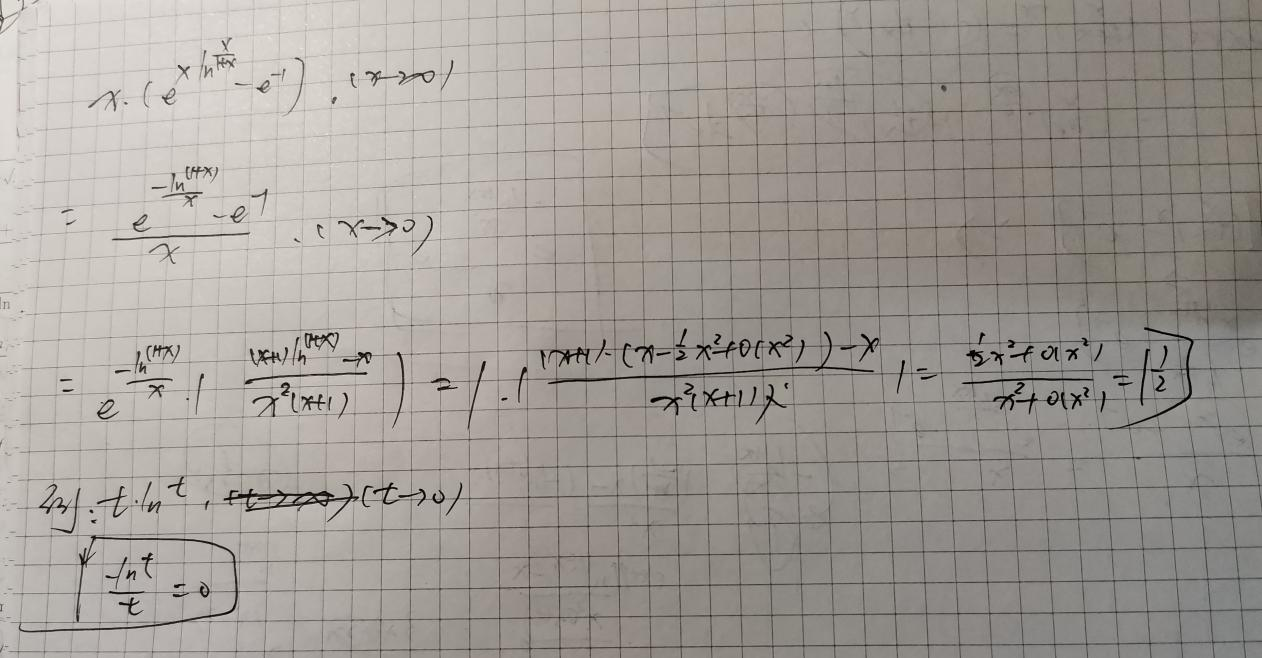 x·(e^{x ln^{\frac{x}{1+x}}} - e^{-1}). (x→∞)
= \frac{e^{\frac{-ln^{(1+x)}}{x}} - e^{-1}}{x}. (x→0)
= e^{\frac{-ln^{(1+x)}}{x}}·( \frac{(x+1)ln^{(1+x)} - x}{x²(x+1)} ) = 1·( \frac{(x+1)·(x-\frac{1}{2}x²+o(x²))-x}{x²(x+1)} ) = \frac{\frac{1}{2}x²+o(x²)}{x²+o(x²)} = \frac{1}{2}
例: t·ln^t, (t→0)
\frac{-ln^t}{t} = 0